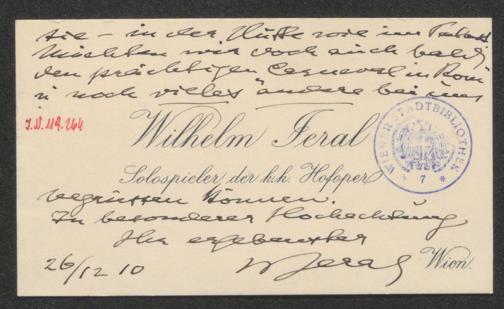 sie – in der Hütte wie im
Möchten wir doch auch bald
den prächtigen Carneval in Rom
u noch vieles andere bei uns
I.N. 119.264
Wilhelm Jeral
Solospieler der k.k. Hofoper
WIENER STADTBIBLIOTHEK
* 7 *
begrüssen können.
In besonderer Hochachtung
Ihr ergebenster
26/12 10
W Jeral
Wien.